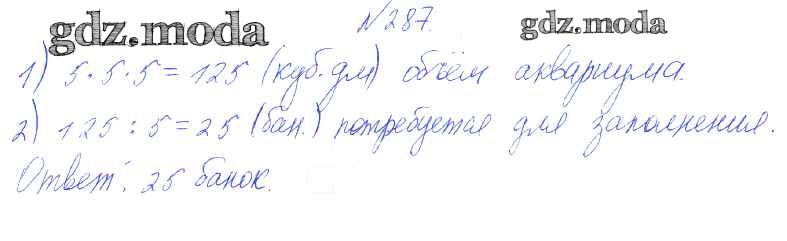 gdz.moda №287. gdz.moda
1) 5·5·5=125 (куб.дм) объём аквариума.
2) 125:5=25 (бан.) потребуется для заполнения.
Ответ: 25 банок.